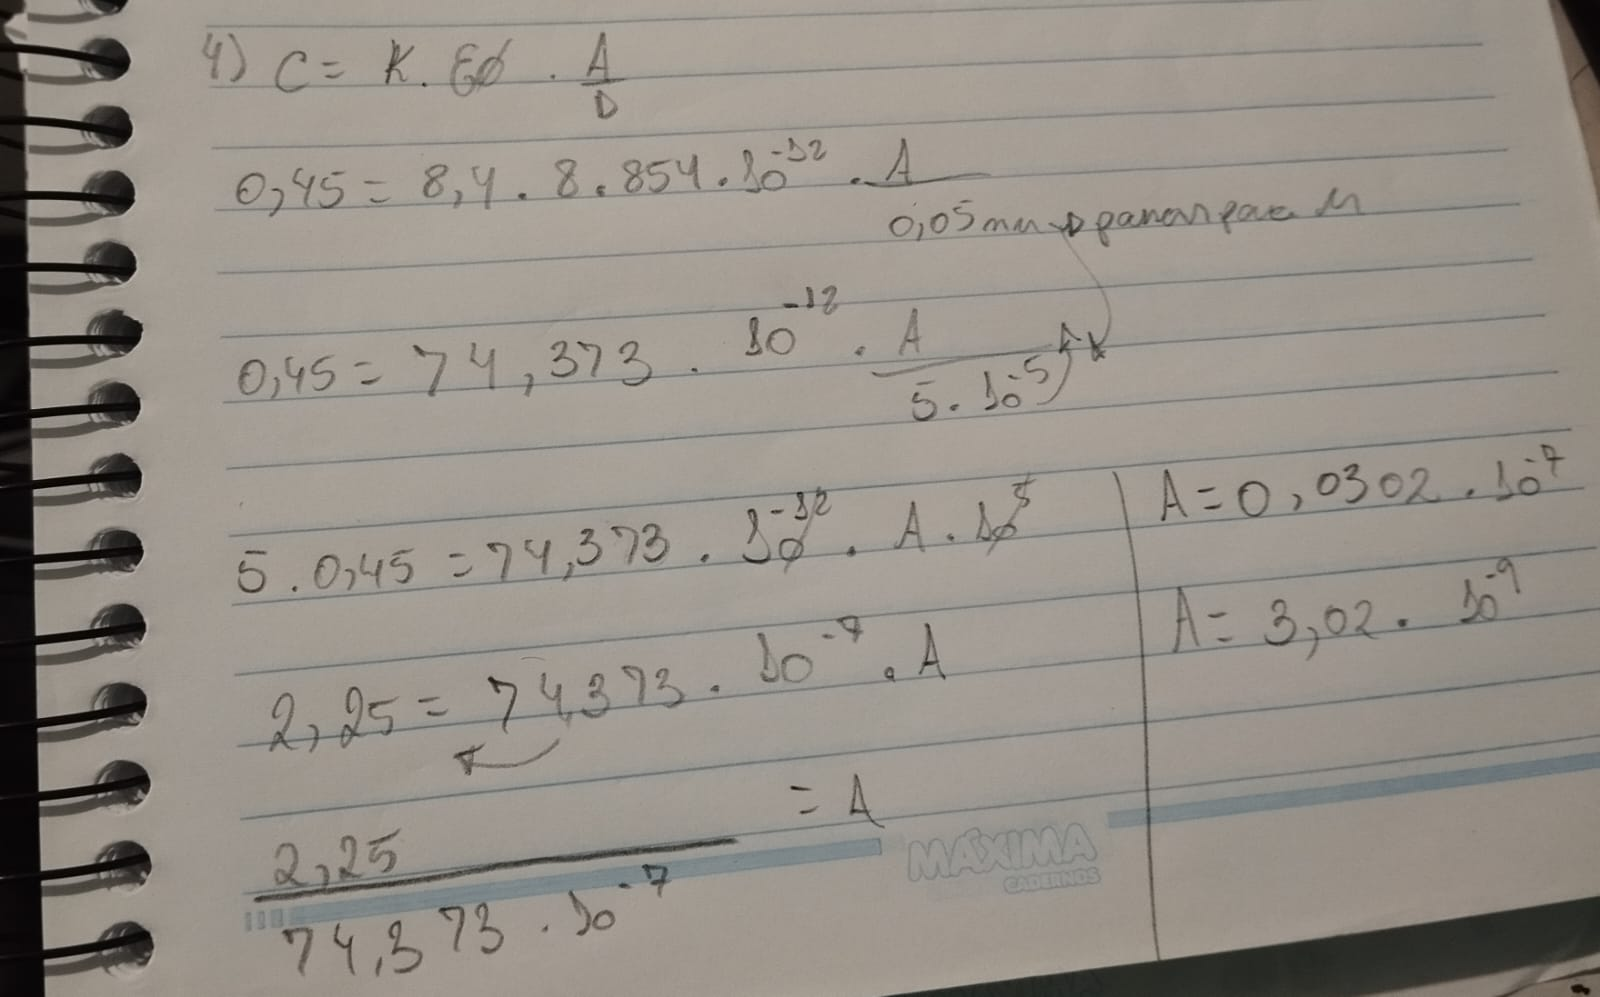 4) C = K . E0 . A/D
0,45 = 8,4 . 8.854 . 10^-12 . A/0,05mm
0,45 = 74,373 . 10^-12 . A/5 . 10^-5
5 . 0,45 = 74,373 . 10^-12 . A . 10^5
2,25 = 74,373 . 10^-7 . A
2,25/74,373 . 10^-7 = A
A = 0,0302 . 10^-7
A = 3,02 . 10^-9
MÁXIMA
CADERNOS